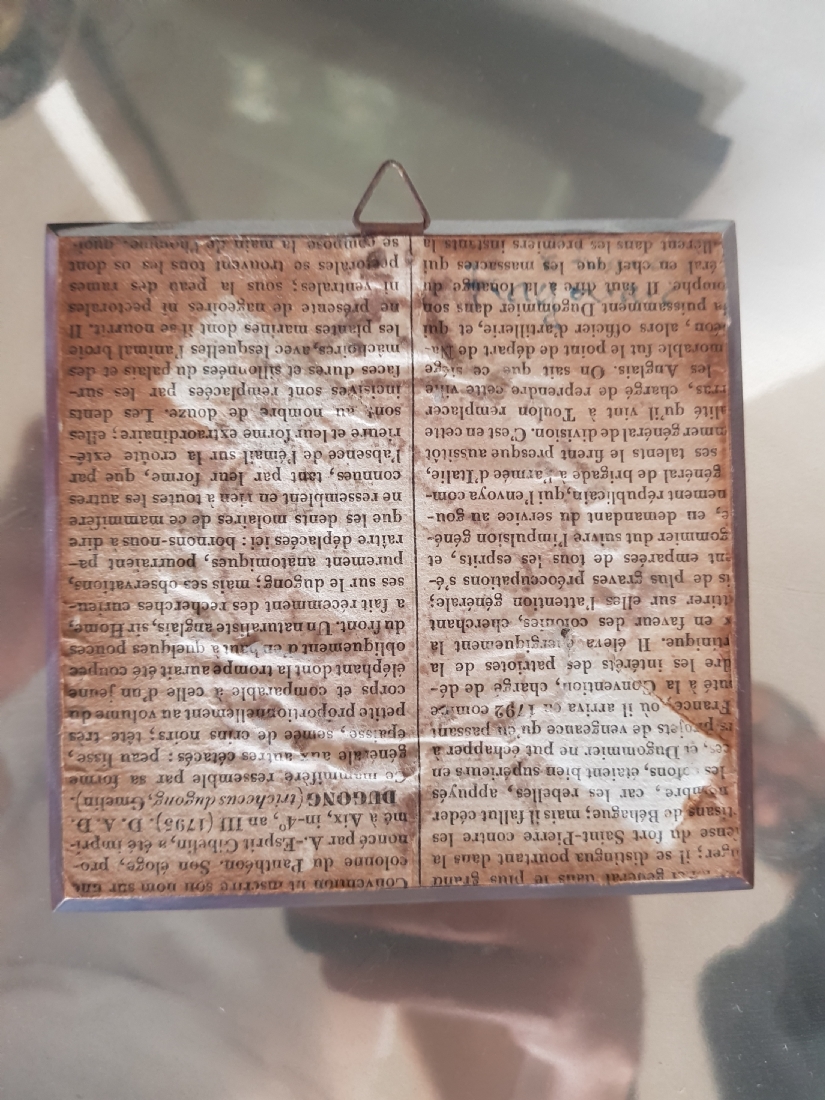 général dans le plus grand
ger; il se distingua pourtant dans la
ense du fort Saint-Pierre contre les
tisans de Béhague; mais il fallut céder
nombre, car les rebelles, appuyés
les colons, étaient bien supérieurs en
ce, et Dugommier ne put échapper à
rs projets de vengeance qu'en passant
France, où il arriva en 1792 comme
uté à la Convention, chargé de dé-
dre les intérêts des patriotes de la
rtinique. Il éleva énergiquement la
x en faveur des colonies, cherchant
ttirer sur elles l'attention générale;
is de plus graves préoccupations s'é-
nt emparées de tous les esprits, et
gommier dut suivre l'impulsion géné-
e, en demandant du service au gou-
nement républicain, qui l'envoya com-
général de brigade à l'armée d'Italie,
ses talents le firent presque aussitôt
mmer général de division. C'est en cette
alité qu'il vint à Toulon remplacer
rras, chargé de reprendre cette ville
les Anglais. On sait que ce siége
morable fut le point de départ de Na-
éon, alors officier d'artillerie, et qui
a puissamment Dugommier dans son
omphe. Il faut dire à la louange du
éral en chef que les massacres qui
llèrent dans les premiers instants la
Convention fit inscrire son nom sur une
colonne du Panthéon. Son éloge, pro-
noncé par A.-Esprit Gibelin, a été impri-
mé à Aix, in-4°, an III (1795). D. A. D.
DUGONG (trichecus dugong, Gmelin).
Ce mammifère ressemble par sa forme
générale aux autres cétacés: peau lisse,
épaisse, semée de crins noirs; tête très
petite proportionnellement au volume du
corps et comparable à celle d'un jeune
éléphant dont la trompe aurait été coupée
obliquement d'en haut à quelques pouces
du front. Un naturaliste anglais, sir Home,
a fait récemment des recherches curieu-
ses sur le dugong; mais ses observations,
purement anatomiques, pourraient pa-
raître déplacées ici: bornons-nous à dire
que les dents molaires de ce mammifère
ne ressemblent en rien à toutes les autres
connues, tant par leur forme, que par
l'absence de l'émail sur la croûte exté-
rieure et leur forme extraordinaire; elles
sont au nombre de douze. Les dents
incisives sont remplacées par les sur-
faces dures et sillonnées du palais et des
mâchoires, avec lesquelles l'animal broie
les plantes marines dont il se nourrit. Il
ne présente de nageoires ni pectorales
ni ventrales; sous la peau des rames
pectorales se trouvent tous les os dont
se compose la main de l'homme, quoi-